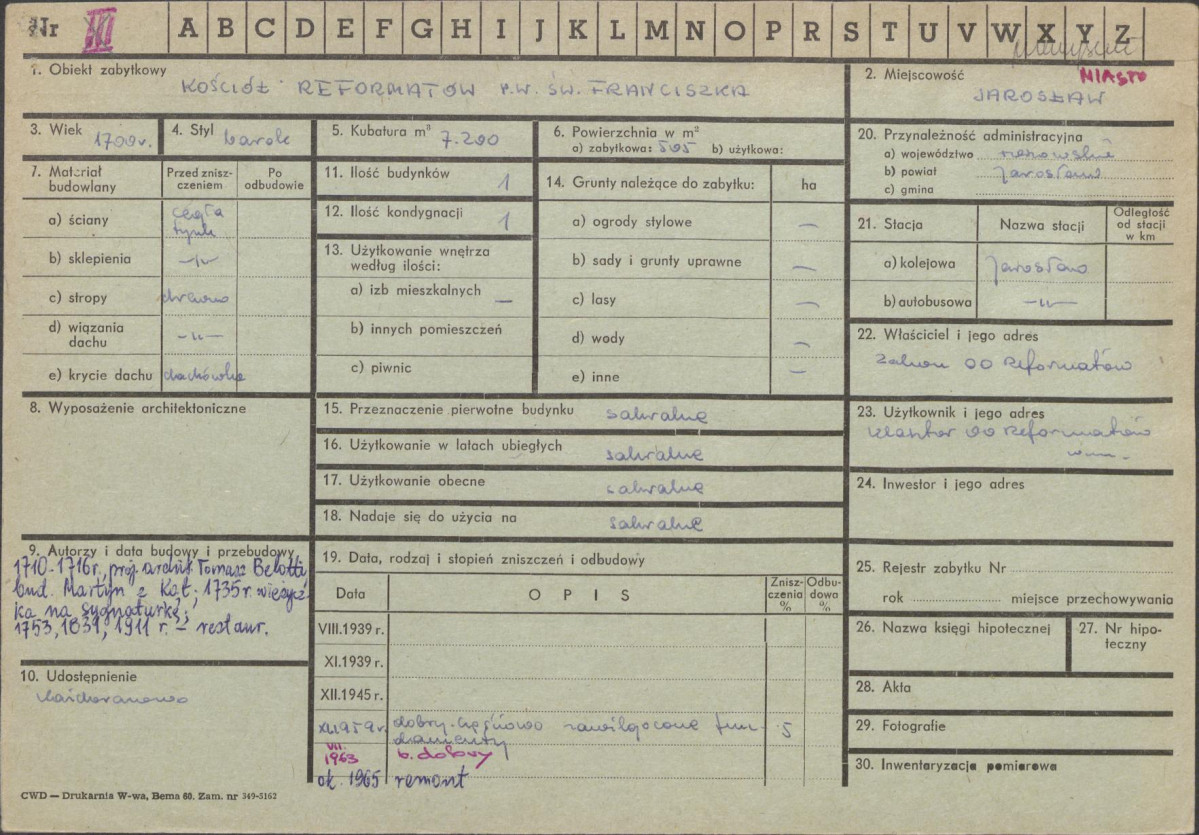 Nr III A B C D E F G H I J K L M N O P R S T U V W X Y Z
1. Obiekt zabytkowy
KOŚCIÓŁ REFORMATÓW P.W. ŚW. FRANCISZKA
2. Miejscowość MIASTO
JAROSŁAW
3. Wiek 1700 r.
4. Styl barok
5. Kubatura m³ 7.200
6. Powierzchnia w m²
a) zabytkowa: 505 b) użytkowa:
20. Przynależność administracyjna
a) województwo rzeszowskie
b) powiat Jarosław
c) gmina
7. Materiał budowlany
Przed zniszczeniem
Po odbudowie
a) ściany cegła
tynk
b) sklepienia —„—
c) stropy drewno
d) wiązania dachu —„—
e) krycie dachu dachówka
11. Ilość budynków 1
12. Ilość kondygnacji 1
13. Użytkowanie wnętrza
według ilości:
a) izb mieszkalnych —
b) innych pomieszczeń
c) piwnic
14. Grunty należące do zabytku: ha
a) ogrody stylowe —
b) sady i grunty uprawne —
c) lasy —
d) wody —
e) inne —
21. Stacja
Nazwa stacji
Odległość
od stacji
w km
a) kolejowa Jarosław
b) autobusowa —„—
22. Właściciel i jego adres
Zakon OO Reformatów
8. Wyposażenie architektoniczne
15. Przeznaczenie pierwotne budynku sakralne
16. Użytkowanie w latach ubiegłych sakralne
17. Użytkowanie obecne sakralne
18. Nadaje się do użycia na sakralne
23. Użytkownik i jego adres
Klasztor OO Reformatów
24. Inwestor i jego adres
9. Autorzy i data budowy i przebudowy
1710-1716 r., proj. archit. Tomasz Belotti
bud. Martyn z Kąt; 1735 r. wieżycz-
ka na sygnaturkę;
1753, 1831, 1911 r. – restaur.
10. Udostępnienie
19. Data, rodzaj i stopień zniszczeń i odbudowy
Data
OPIS
Zniszczenia %
Odbudowa %
VIII.1939 r.
XI.1939 r.
XII.1945 r.
XI.1959 r. dobry-częściowo zawilgocone fun- 5
damenty
VII.
1963 b. dobry
ok. 1965 remont
25. Rejestr zabytku Nr
rok miejsce przechowywania
26. Nazwa księgi hipotecznej
27. Nr hipo-
teczny
28. Akta
29. Fotografie
30. Inwentaryzacja pomiarowa
CWD — Drukarnia W-wa, Bema 60. Zam. nr 349-5162